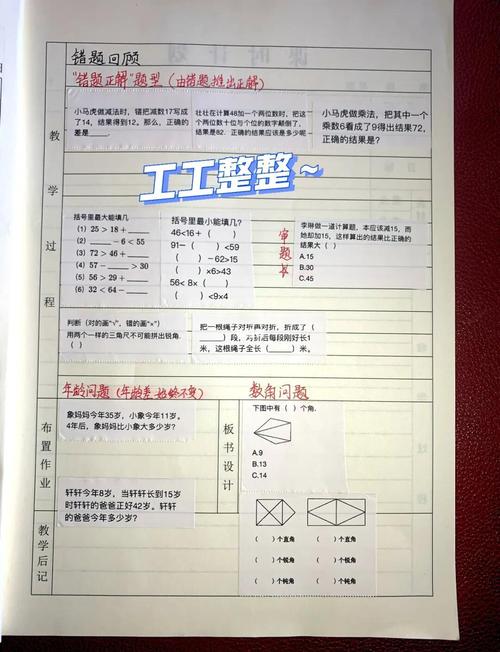 错题回顾
"错题正解"题型(由错题推出正解)
教学过程
小马虎做减法时,错把减数17写成
了14,结果得到12。那么,正确的
差是_____.
壮壮在计算48加一个两位数时,把这
个两位数十位与个位的数字颠倒了,
结果是82. 正确的结果应该是多少呢
小马虎做乘法,把其中一个
乘数6看成了9得出结果72,
正确的结果是?
工工整整~
括号里最大能填几
(1) 25>18+_____
(2) _____-6<55
(3) 72>46+_____
(4) 57-_____>30
(5) 56>29+_____
(6) 32<64-_____
括号里最小能填几?
46<16+( )
91-( )<59
( )-62>15
( )×6>43
56<8×( )
( )<9×4
审题
李琳做一道计算题,本应该减15,而
她却加15,这样算出的结果比正确的
结果大( )
A.15
B.30
C.45
判断(对的画"√",错的画"×")
用两个一样的三角尺不可能拼出锐角.
( )
把一根绳子对折再对折,折成了(
)段,对折后每段刚好长1
米,这根绳子全长(_____)米.
年龄问题(年龄差始终不变)
数角问题
布置作业
象妈妈今年35岁,小象今年11岁。
4年后,象妈妈比小象大多少岁?
轩轩今年8岁,当轩轩长到15岁
时轩轩的爸爸正好42岁。轩轩
的爸爸今年多少岁?
板书设计
下图中有( )个角.
A.9
B.13
C.14
教学后记
( )个直角 ( )个直角
( )个锐角 ( )个锐角
( )个钝角 ( )个钝角